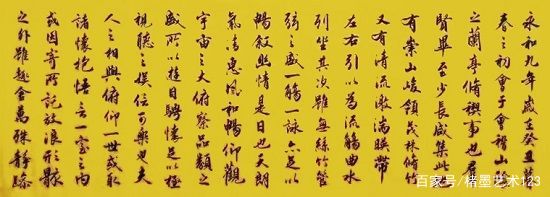 永和九年歲在癸丑暮
春之初會于會稽山陰
之蘭亭脩稧事也群
賢畢至少長咸集此
有崇山峻領茂林脩竹
又有清流激湍暎帶
左右引以為流觴曲水
列坐其次雖無絲竹管
弦之盛一觴一詠亦足以
暢敘幽情是日也天朗
氣清惠風和暢仰觀
宇宙之大俯察品類之
盛所以遊目騁懷足以極
視聽之娛信可樂也夫
人之相與俯仰一世或取
諸懷抱悟言一室之內
或因寄所託放浪形骸
之外雖趣舍萬殊靜躁
百家号/楮墨艺术123